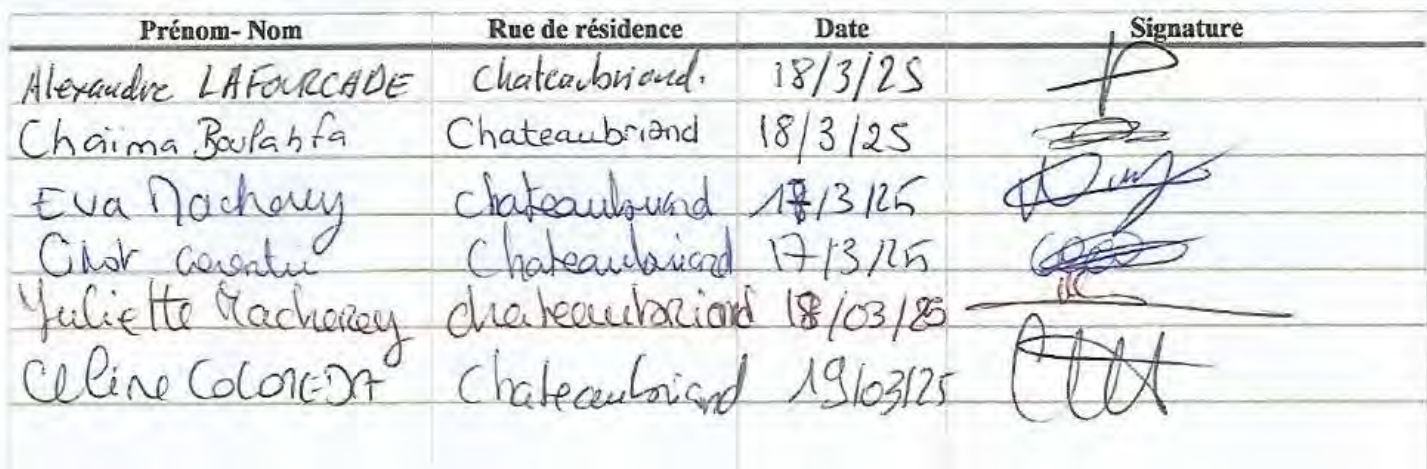 Prénom- Nom Rue de résidence Date Signature
Alexandre LAFOURCADE Chateaubriand. 18/3/25
Chaima Boulahfa Chateaubriand 18/3/25
Eva Macherey Chateaubriand 3/25
Corentin Chateaubriand 17/3/25
Juliette Macherey chateaubriand 18/03/25
Celine Chateaubriand 19/03/25